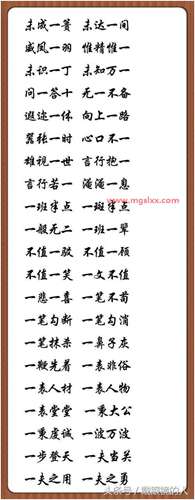 未成一篑 未达一间
威凤一羽 惟精惟一
未识一丁 未知万一
问一答十 无一不备
遐迩一体 向上一路
嚣张一时 心口不一
雄视一世 言行抱一
言行若一 淹淹一息
www.mgslxx.com
一班半点 一斑半点
一般无二 一班一辈
不值一驳 不值一顾
不值一笑 一文不值
一悲一喜 一笔不苟
一笔勾断 一笔勾消
一笔抹杀 一鼻子灰
一鞭先着 一表非俗
一表人材 一表人物
一表堂堂 一秉大公
一秉虔诚 一波万波
一步登天 一夫当关
一夫之用 一夫之勇
头条号